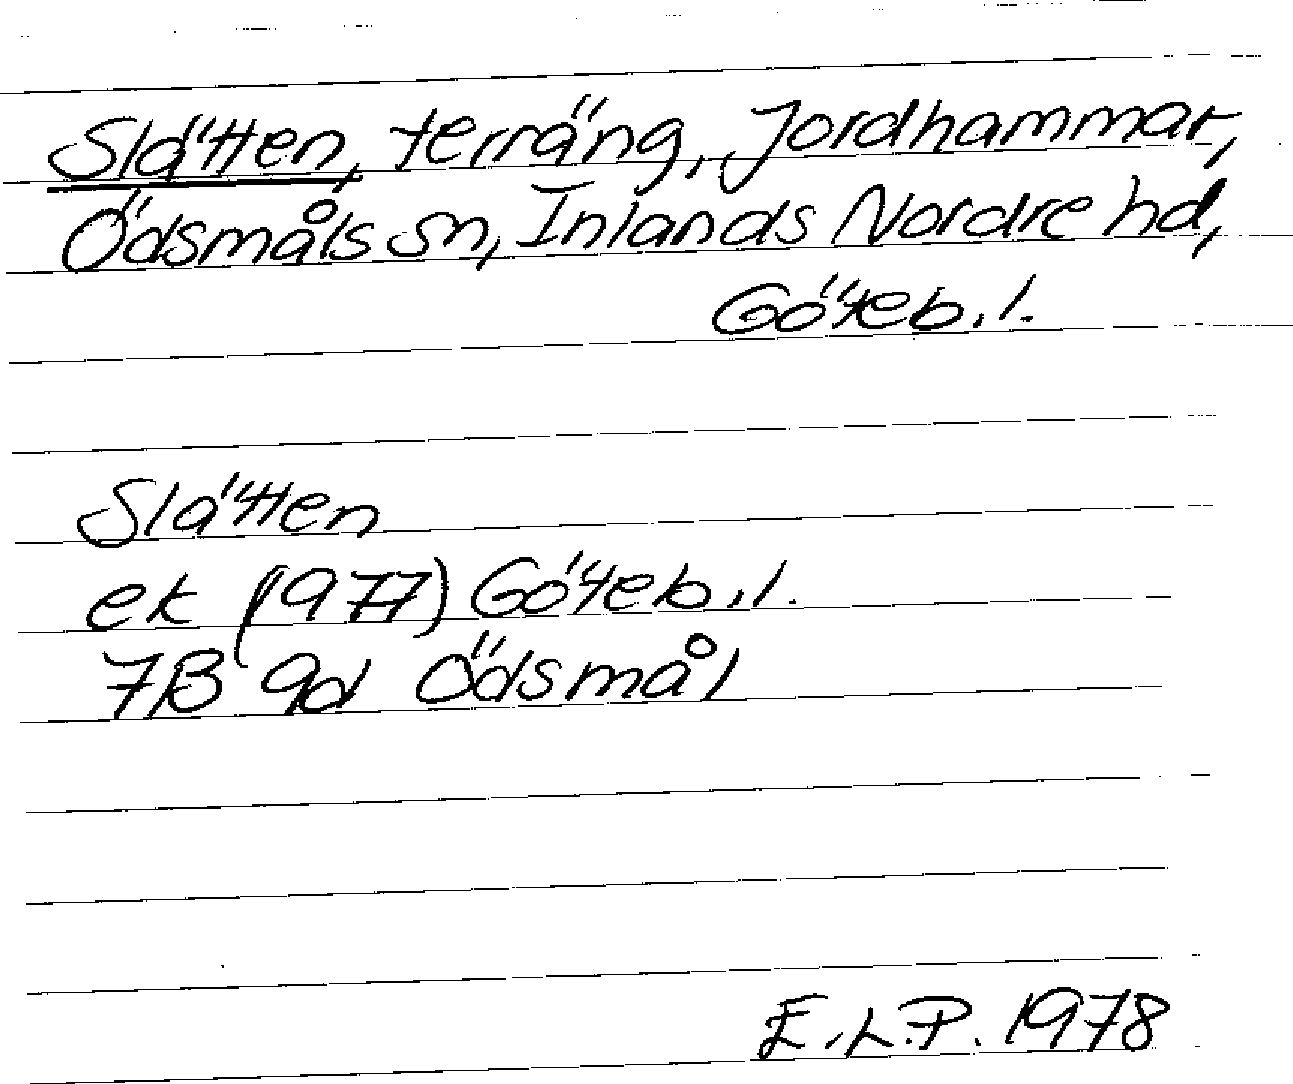 Slätten, terräng, Jordhammar,
Ödsmåls sn, Inlands Nordre hd,
Göteb. l.
Slätten
ek (1977) Göteb. l.
7B 9d Ödsmål
E.L.P. 1978